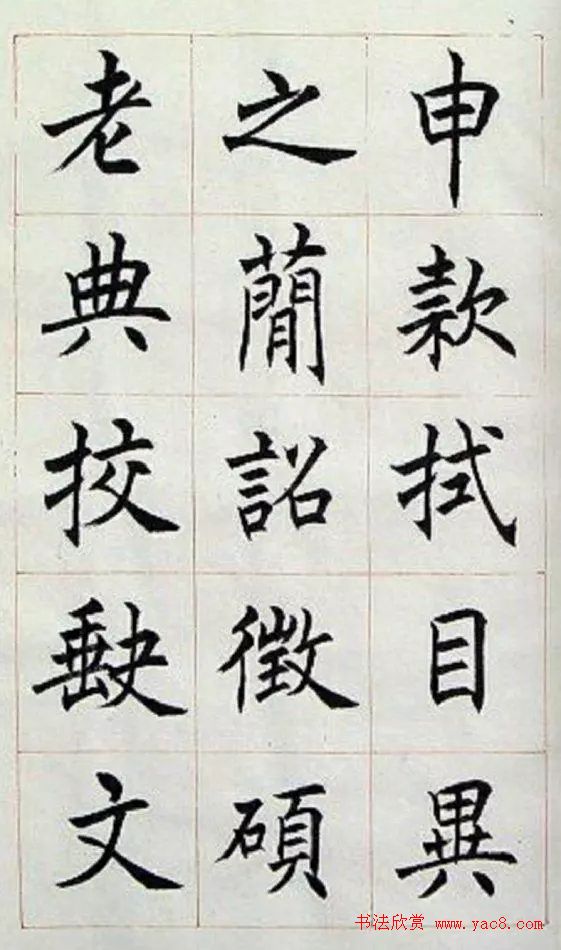 申款拭目異
之蕳詔徵碩
老典挍缺文
书法欣赏 www.yac8.com